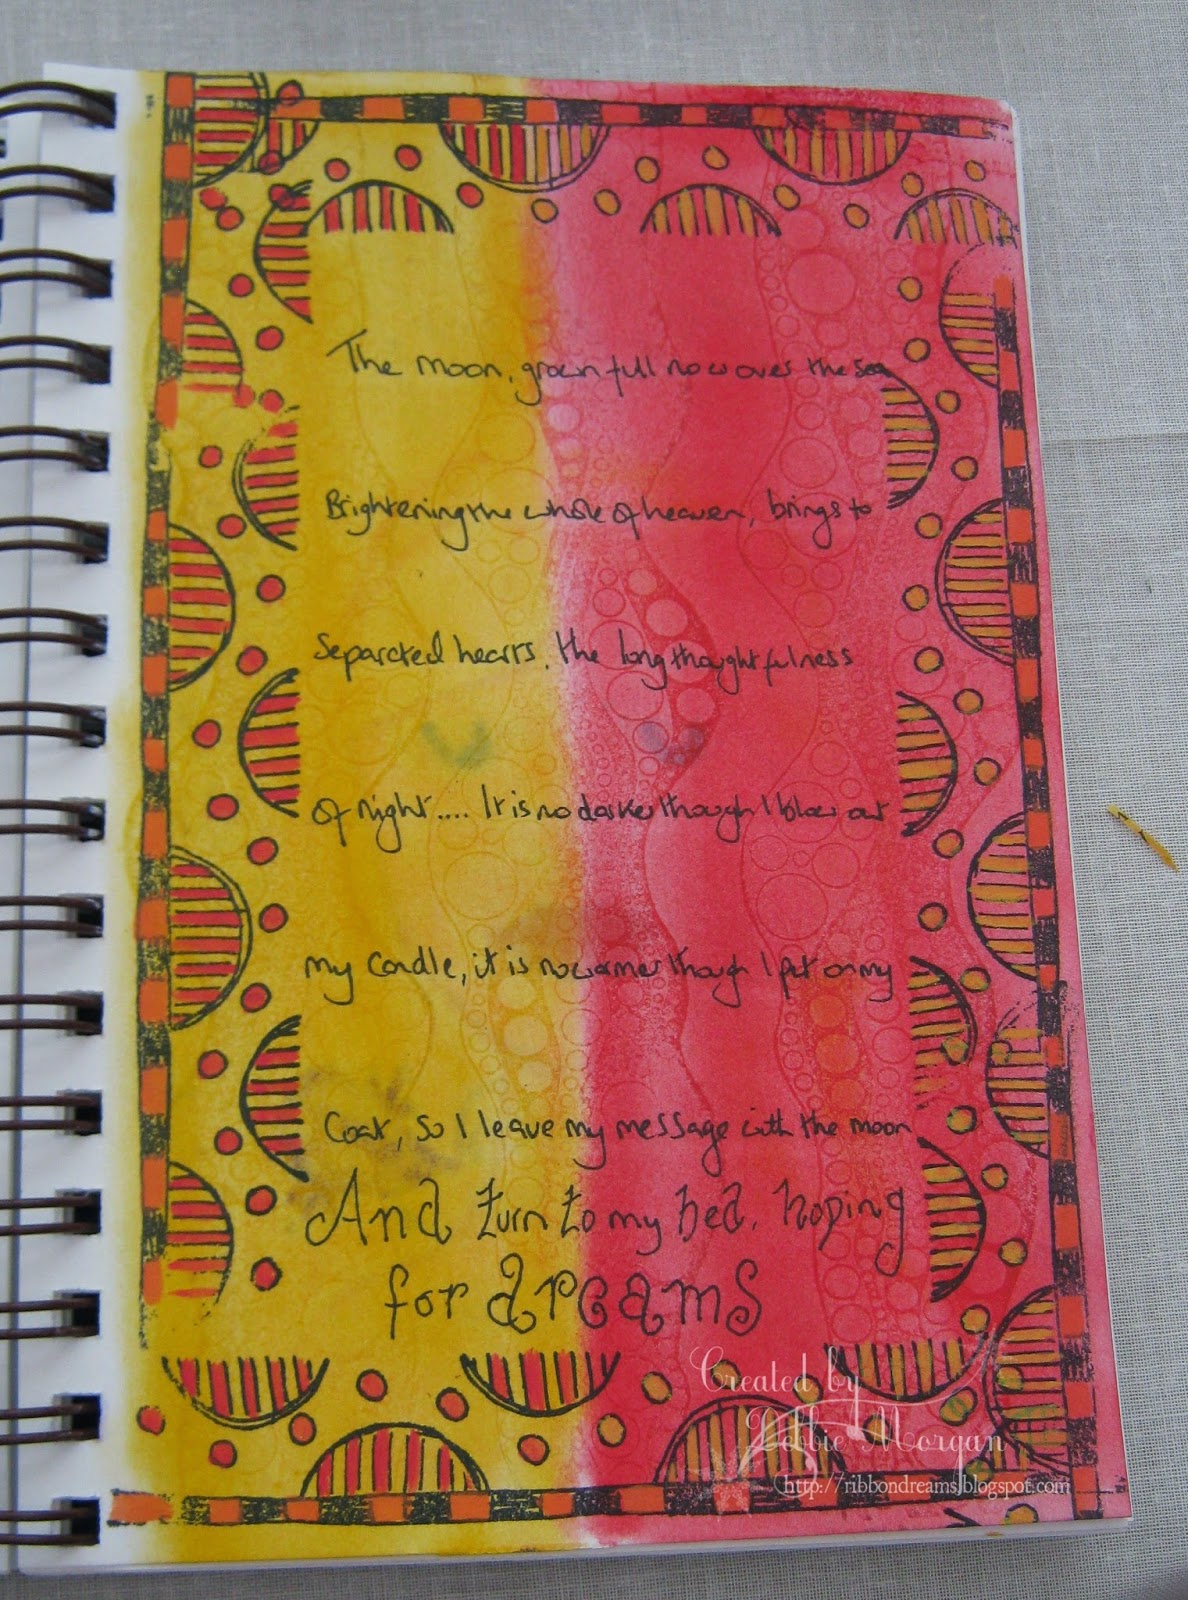 The moon, grown full now over the sea
Brightening the whole of heaven, brings to
Separated hearts, the long thoughtfulness
of night.... It is no darker though I blow out
my candle, it is no warmer though I put on my
Coat, so I leave my message with the moon
And turn to my bed, hoping
for dreams
Created by
Debbie Morgan
http://ribbondreams.blogspot.com